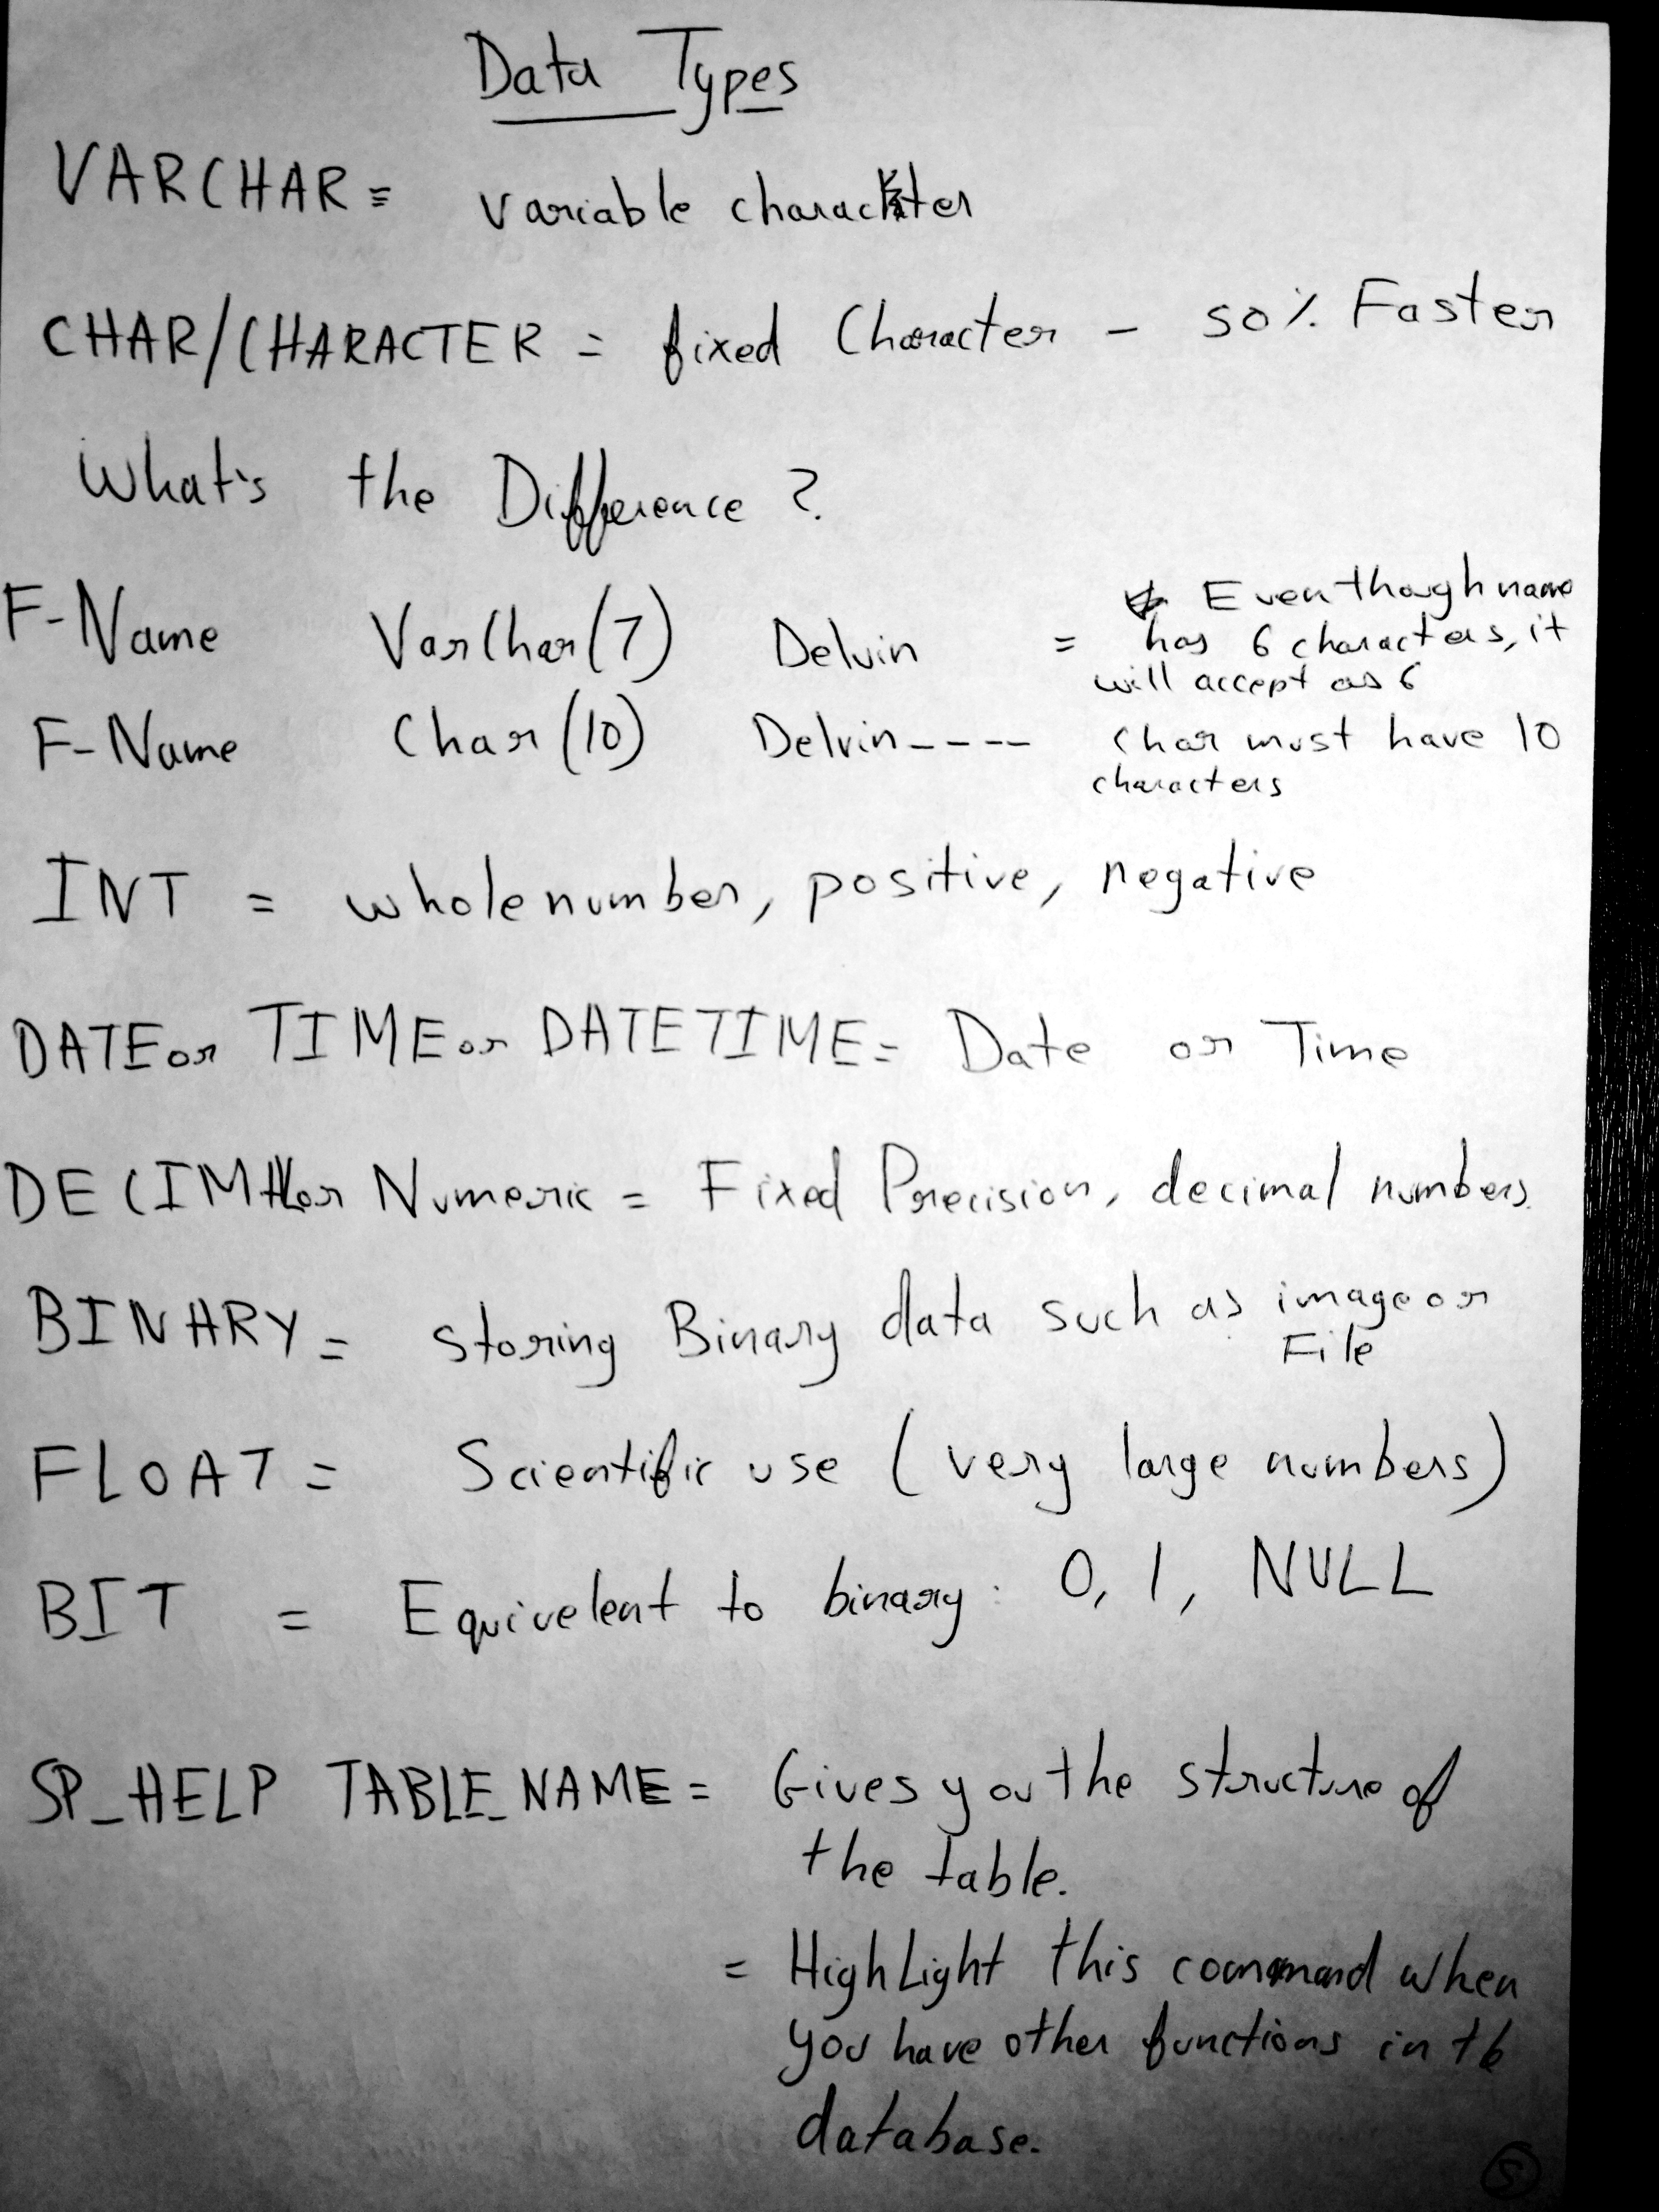 Data Types
VARCHAR = variable character
CHAR/CHARACTER = fixed Character - 50% Faster
What's the Difference ?
F-Name VarChar(7) Delvin = Eventhough name
has 6 characters, it
will accept as 6
F-Name Char(10) Delvin---- Char must have 10
characters
INT = whole number, positive, negative
DATE or TIME or DATETIME = Date or Time
DECIMAL or Numeric = Fixed Precision, decimal numbers.
BINARY = storing Binary data such as image or
File
FLOAT = Scientific use (very large numbers)
BIT = Equivelent to binary : 0, 1, NULL
SP_HELP TABLE_NAME = Gives you the structure of
the table.
= HighLight this command when
you have other functions in the
database.
5